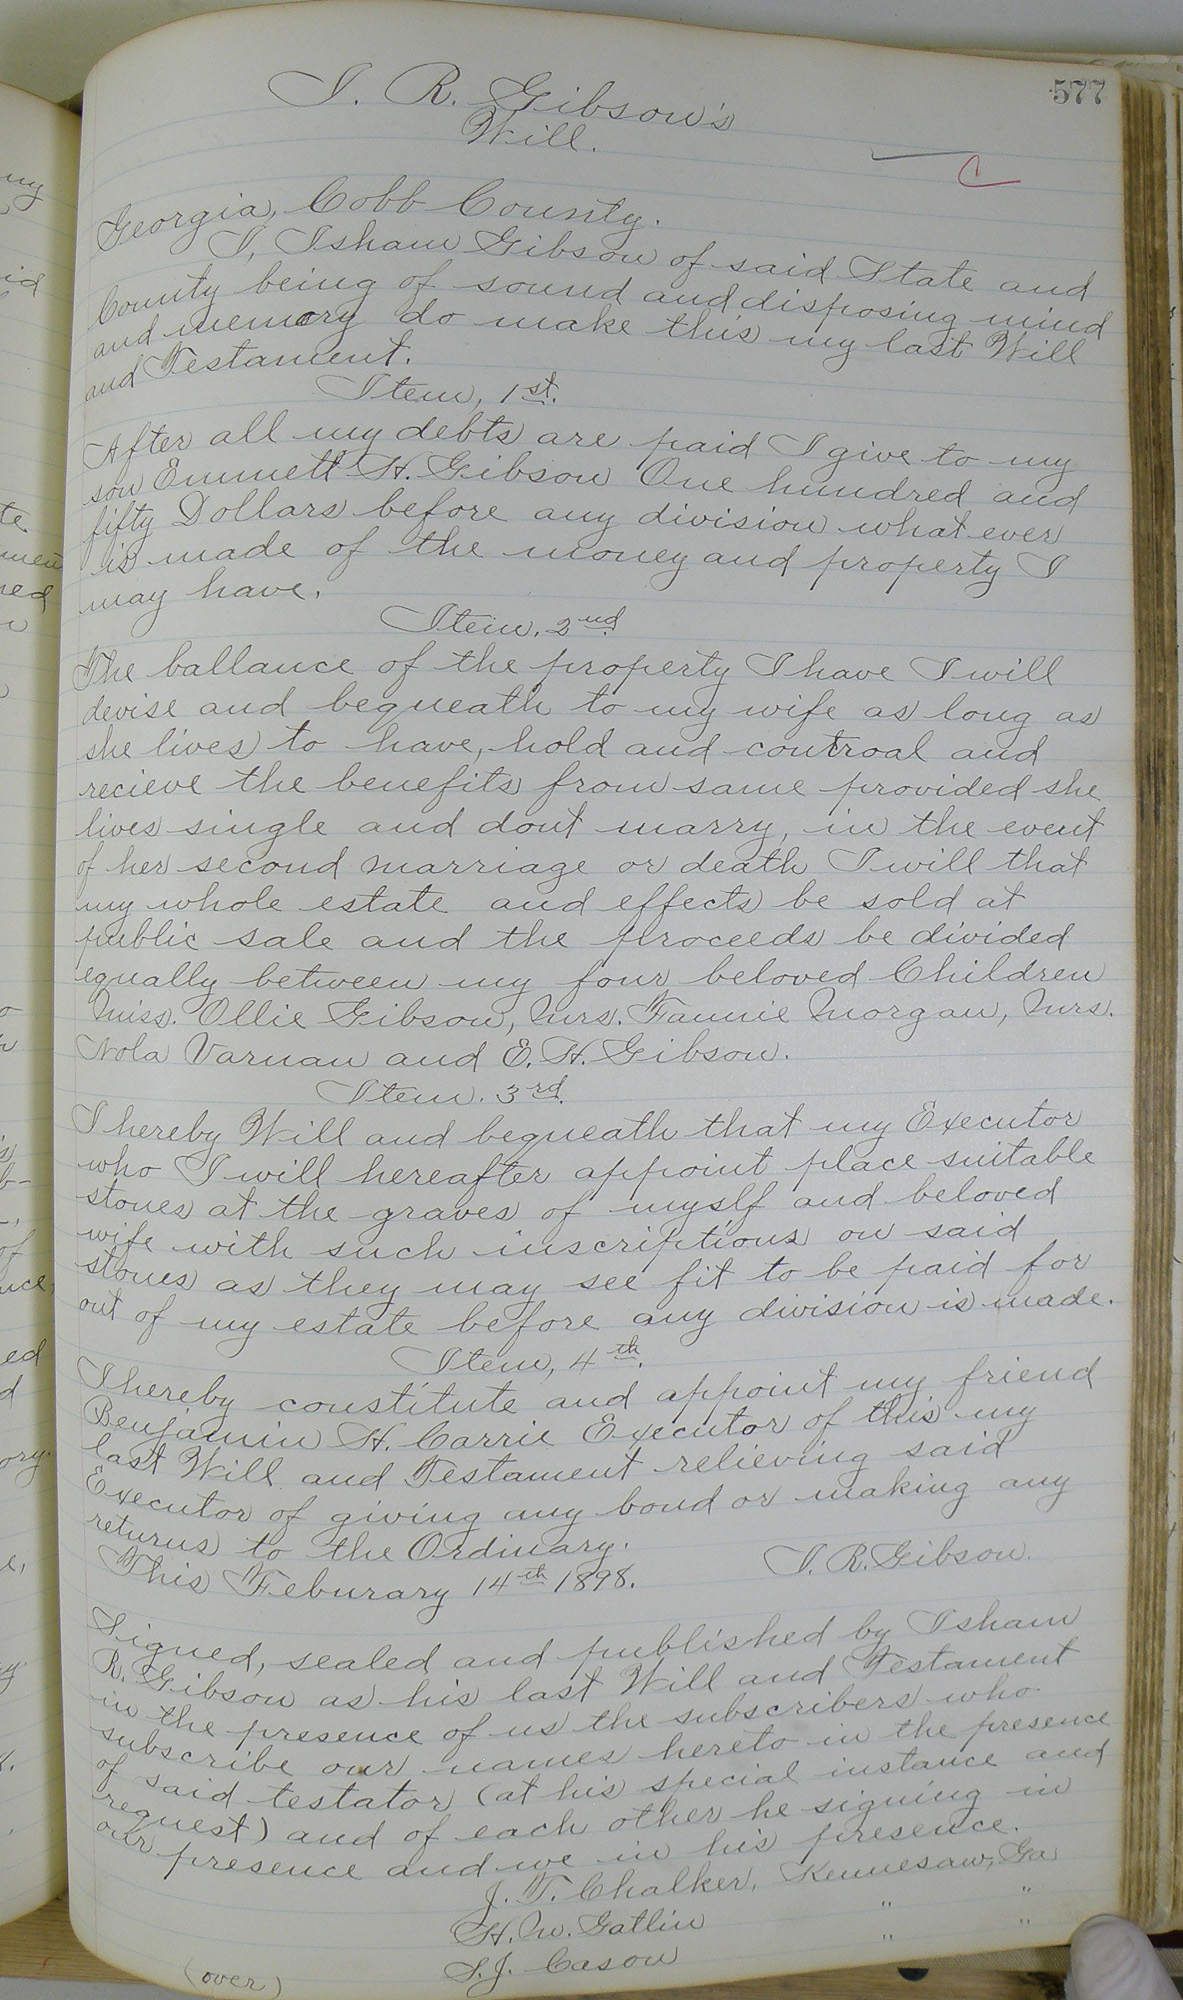 577
I. R. Gibson's
Will.
C
Georgia, Cobb County.
I, Isham Gibson of said State and
County being of sound and disposing mind
and memory do make this my last Will
and Testament.
Item, 1st.
After all my debts are paid I give to my
son Emmett H. Gibson One hundred and
fifty Dollars before any division what ever
is made of the money and property I
may have.
Item. 2nd
The ballance of the property I have I will
devise and bequeath to my wife as long as
she lives to have, hold and controal and
recieve the benefits from same provided she
lives single and dont marry, in the event
of her second marriage or death I will that
my whole estate and effects be sold at
public sale and the proceeds be divided
equally between my four beloved Children
Miss. Ollie Gibson, Mrs. Fannie Morgan, Mrs.
Nola Varnan and E. H. Gibson.
Item. 3rd.
I hereby Will and bequeath that my Executor
who I will hereafter appoint place suitable
stones at the graves of myslf and beloved
wife with such inscriptions on said
stones as they may see fit to be paid for
out of my estate before any division is made.
Item, 4th.
I hereby constitute and appoint my friend
Benjamin H. Carrie Executor of this my
last Will and Testament relieving said
Executor of giving any bond or making any
returns to the Ordinary.
This Feburary 14th 1898.
I. R. Gibson.
Signed, sealed and published by Isham
R. Gibson as his last Will and Testament
in the presence of us the subscribers who
subscribe our names hereto in the presence
of said testator (at his special instance and
request) and of each other he signing in
our presence and we in his presence.
J. T. Chalker, Kennesaw, Ga
H. M. Gatlin " "
S. J. Cason " "
(over)